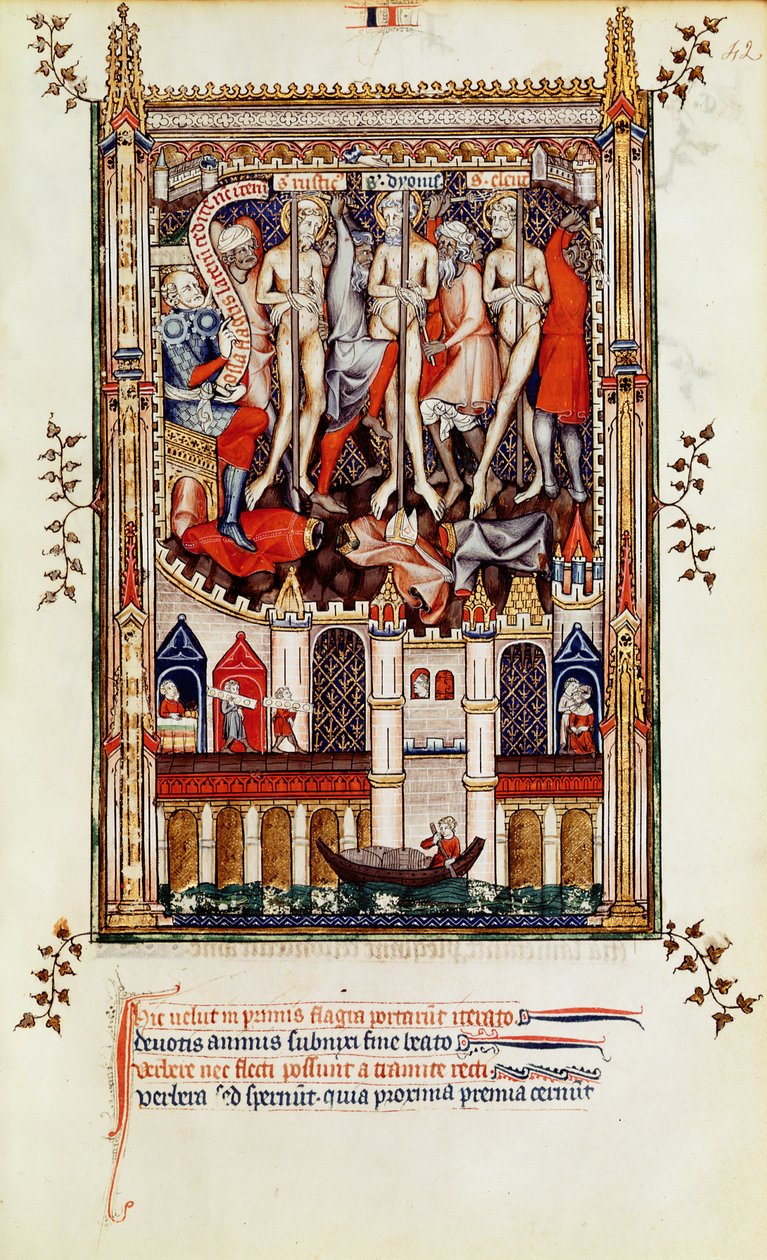 42
S. rustic
S. dyonis
S. eleut
cedite
Hic uelut in primis flagra portarūt iterato.
deuotis animis subnixi fine beato
Verbere nec flecti possunt a tramite recti.
verbera s;d spernūt. quia proxima premia cernūt